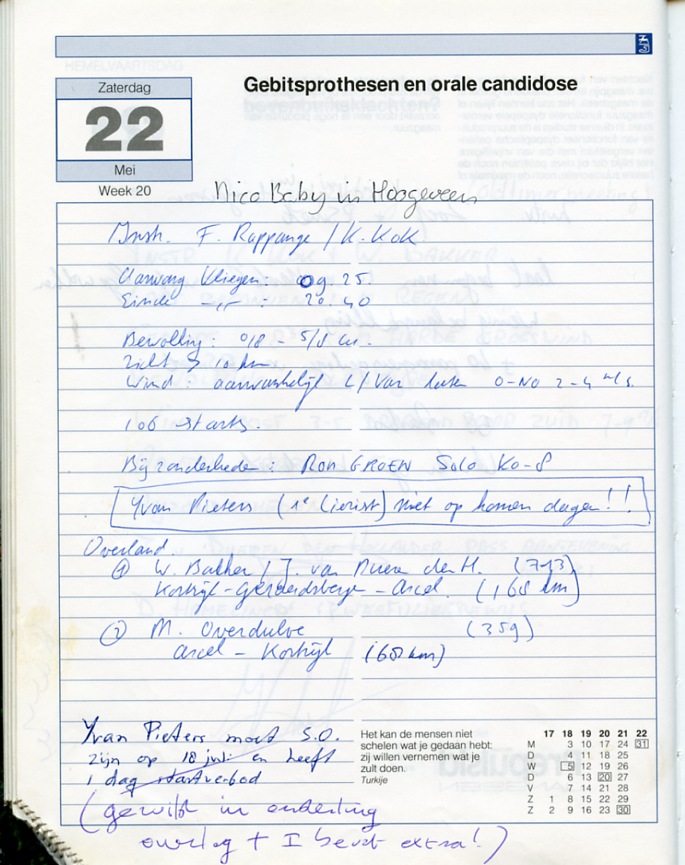 HEMELVAARTSDAG
Zaterdag
22
Mei
Week 20
Gebitsprothesen en orale candidose
Nico Baby in Hoogeveen
Instr. F. Rappange / K. Kok
Aanvang Vliegen: 09.25.
Einde -,,- : 20.40
Bewolking: 0/8 - 5/8 cu.
Zicht > 10 km
Wind: aanvankelijk L/Var later O-NO 2-4 m/s.
106 starts.
Bijzonderheden: RON GROEN Solo Ka-8
Yvan Pieters (1e lierist) niet op komen dagen!!
Overland
① W. Bakker / J. van (713)
Kortrijk-Geraardsbergen - Axel. (168 km)
② M. Overdulve (359)
Axel - Kortrijk (60 km)
Yvan Pieters moet S.O.
zijn op 18 juli en heeft
1 dag startverbod
(gewist in onderling
overleg + 1 beurt extra!)
Het kan de mensen niet
schelen wat je gedaan hebt:
zij willen vernemen wat je
zult doen.
Turkije
17 18 19 20 21 22
M 3 10 17 24 31
D 4 11 18 25
W 5 12 19 26
D 6 13 20 27
V 7 14 21 28
Z 1 8 15 22 29
Z 2 9 16 23 30